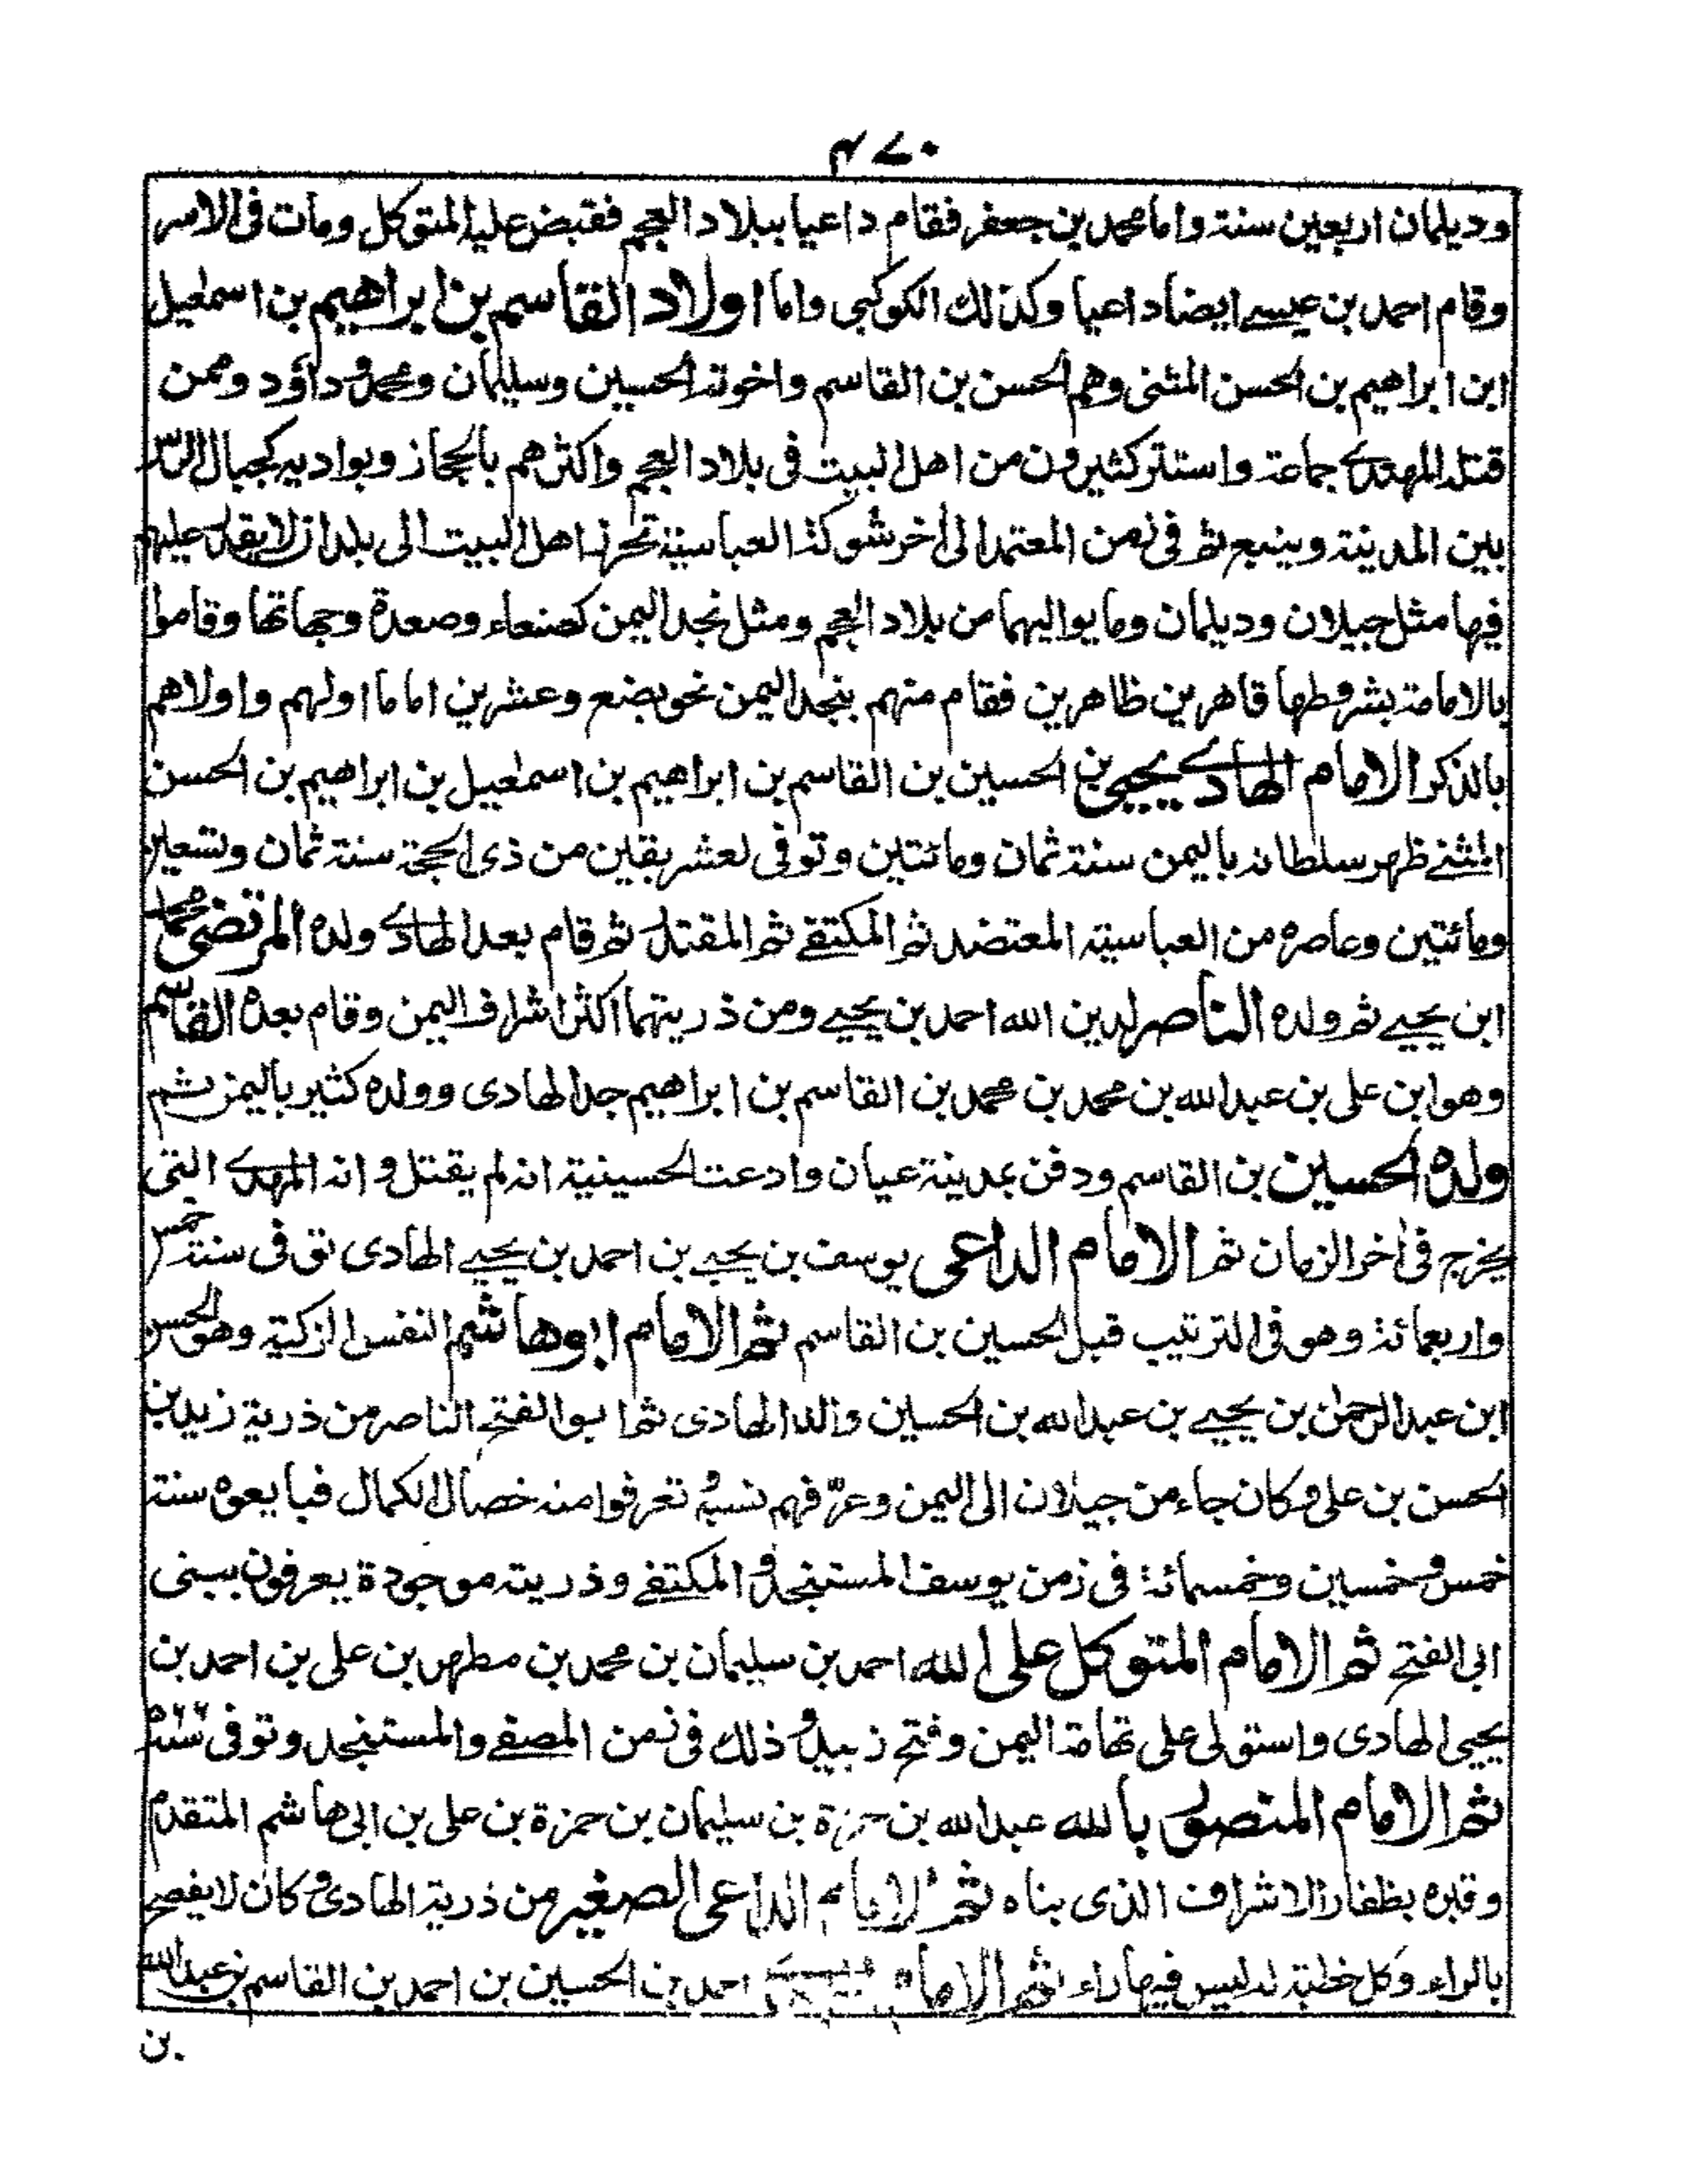 ٤٧٠
وديلمان اربعين سنة واما محمد بن جعفر فقام داعيا ببلاد العجم فقبض عليه المتوكل ومات فى الاسر
وقام احمد بن عيسے ايضا داعيا وكذلك الكوكبى واما اولاد القاسم بن ابراهيم بن اسمٰعيل
ابن ابراهيم بن الحسن المثنى وهم الحسن بن القاسم واخوته الحسين وسليمان ومحمد وداؤد وممن
قتله المهدے جماعة واستتر كثيرون من اهل البيت فى بلاد العجم واكثرهم بالحجاز وبواديه كجبال الرسّ
بين المدينة وينبع ثم فى زمن المعتمد الى اٰخر شوكة العباسية تحرز اهل البيت الى بلدان لا يقدر عليهم
فيها مثل جيلان وديلمان وما يواليهما من بلاد العجم ومثل نجد اليمن كصنعاء وصعدة وجهاتها وقاموا
بالامامة بشروطها قاهرين ظاهرين فقام منهم بنجد اليمن نحو بضع وعشرين اماما اولهم واولاهم
بالذكر الامام الهادے يحيى بن الحسين بن القاسم بن ابراهيم بن اسمٰعيل بن ابراهيم بن الحسن
المثنے ظهر سلطانه باليمن سنة ثمان ومائتين وتوفى لعشر بقين من ذى الحجة سنة ثمان وتسعين
ومائتين وعاصره من العباسية المعتضد ثم المكتفے ثم المقتدر ثم قام بعد الهادے ولده المرتضى محمد
ابن يحيے ثم ولده الناصر لدين الله احمد بن يحيے ومن ذريتهما اكثر اشراف اليمن وقام بعده القاسم
وهو ابن على بن عبد الله بن محمد بن محمد بن القاسم بن ابراهيم جد الهادى وولده كثير باليمن ثم
ولده الحسين بن القاسم ودفن بمدينة عيان وادعت الحسينية انه لم يقتل وانه المهدے التى
يخرج فى اٰخر الزمان ثم الامام الداعى يوسف بن يحيے بن احمد بن يحيے الهادى توفى سنة خمس
واربعمائة وهو فى الترتيب قبل الحسين بن القاسم ثم الامام ابوهاشم النفس الزكية وهو الحسن
ابن عبد الرحمٰن بن يحيے بن عبد الله بن الحسين والد الهادى ثم ابو الفتح الناصر من ذرية زيد بن
الحسن بن على وكان جاء من جيلان الى اليمن وعرّفهم نسبه وتعرفوا منه خصال الكمال فبايعوه سنة
خمس وخمسين وخمسمائة فى زمن يوسف المستنجد والمكتفے وذريته موجودة يعرفون ببنى
ابى الفتح ثم الامام المتوكل على الله احمد بن سليمان بن محمد بن مطهر بن على بن احمد بن
يحيى الهادى واستولى على تهامة اليمن وفتح زبيد وذلك فى زمن المصفے والمستنجد وتوفى سنة ٥٦٦
ثم الامام المنصور بالله عبد الله بن حمزة بن سليمان بن حمزة بن على بن ابى هاشم المتقدم
وقبره بظفار الاشراف الذى بناه ثم الامام الداعى الصغير من ذرية الهادى وكان لا يفصح
بالراء وكل خطبة له ليس فيها راء ثم الامام احمد بن الحسين بن احمد بن القاسم بن عبد الله
بن